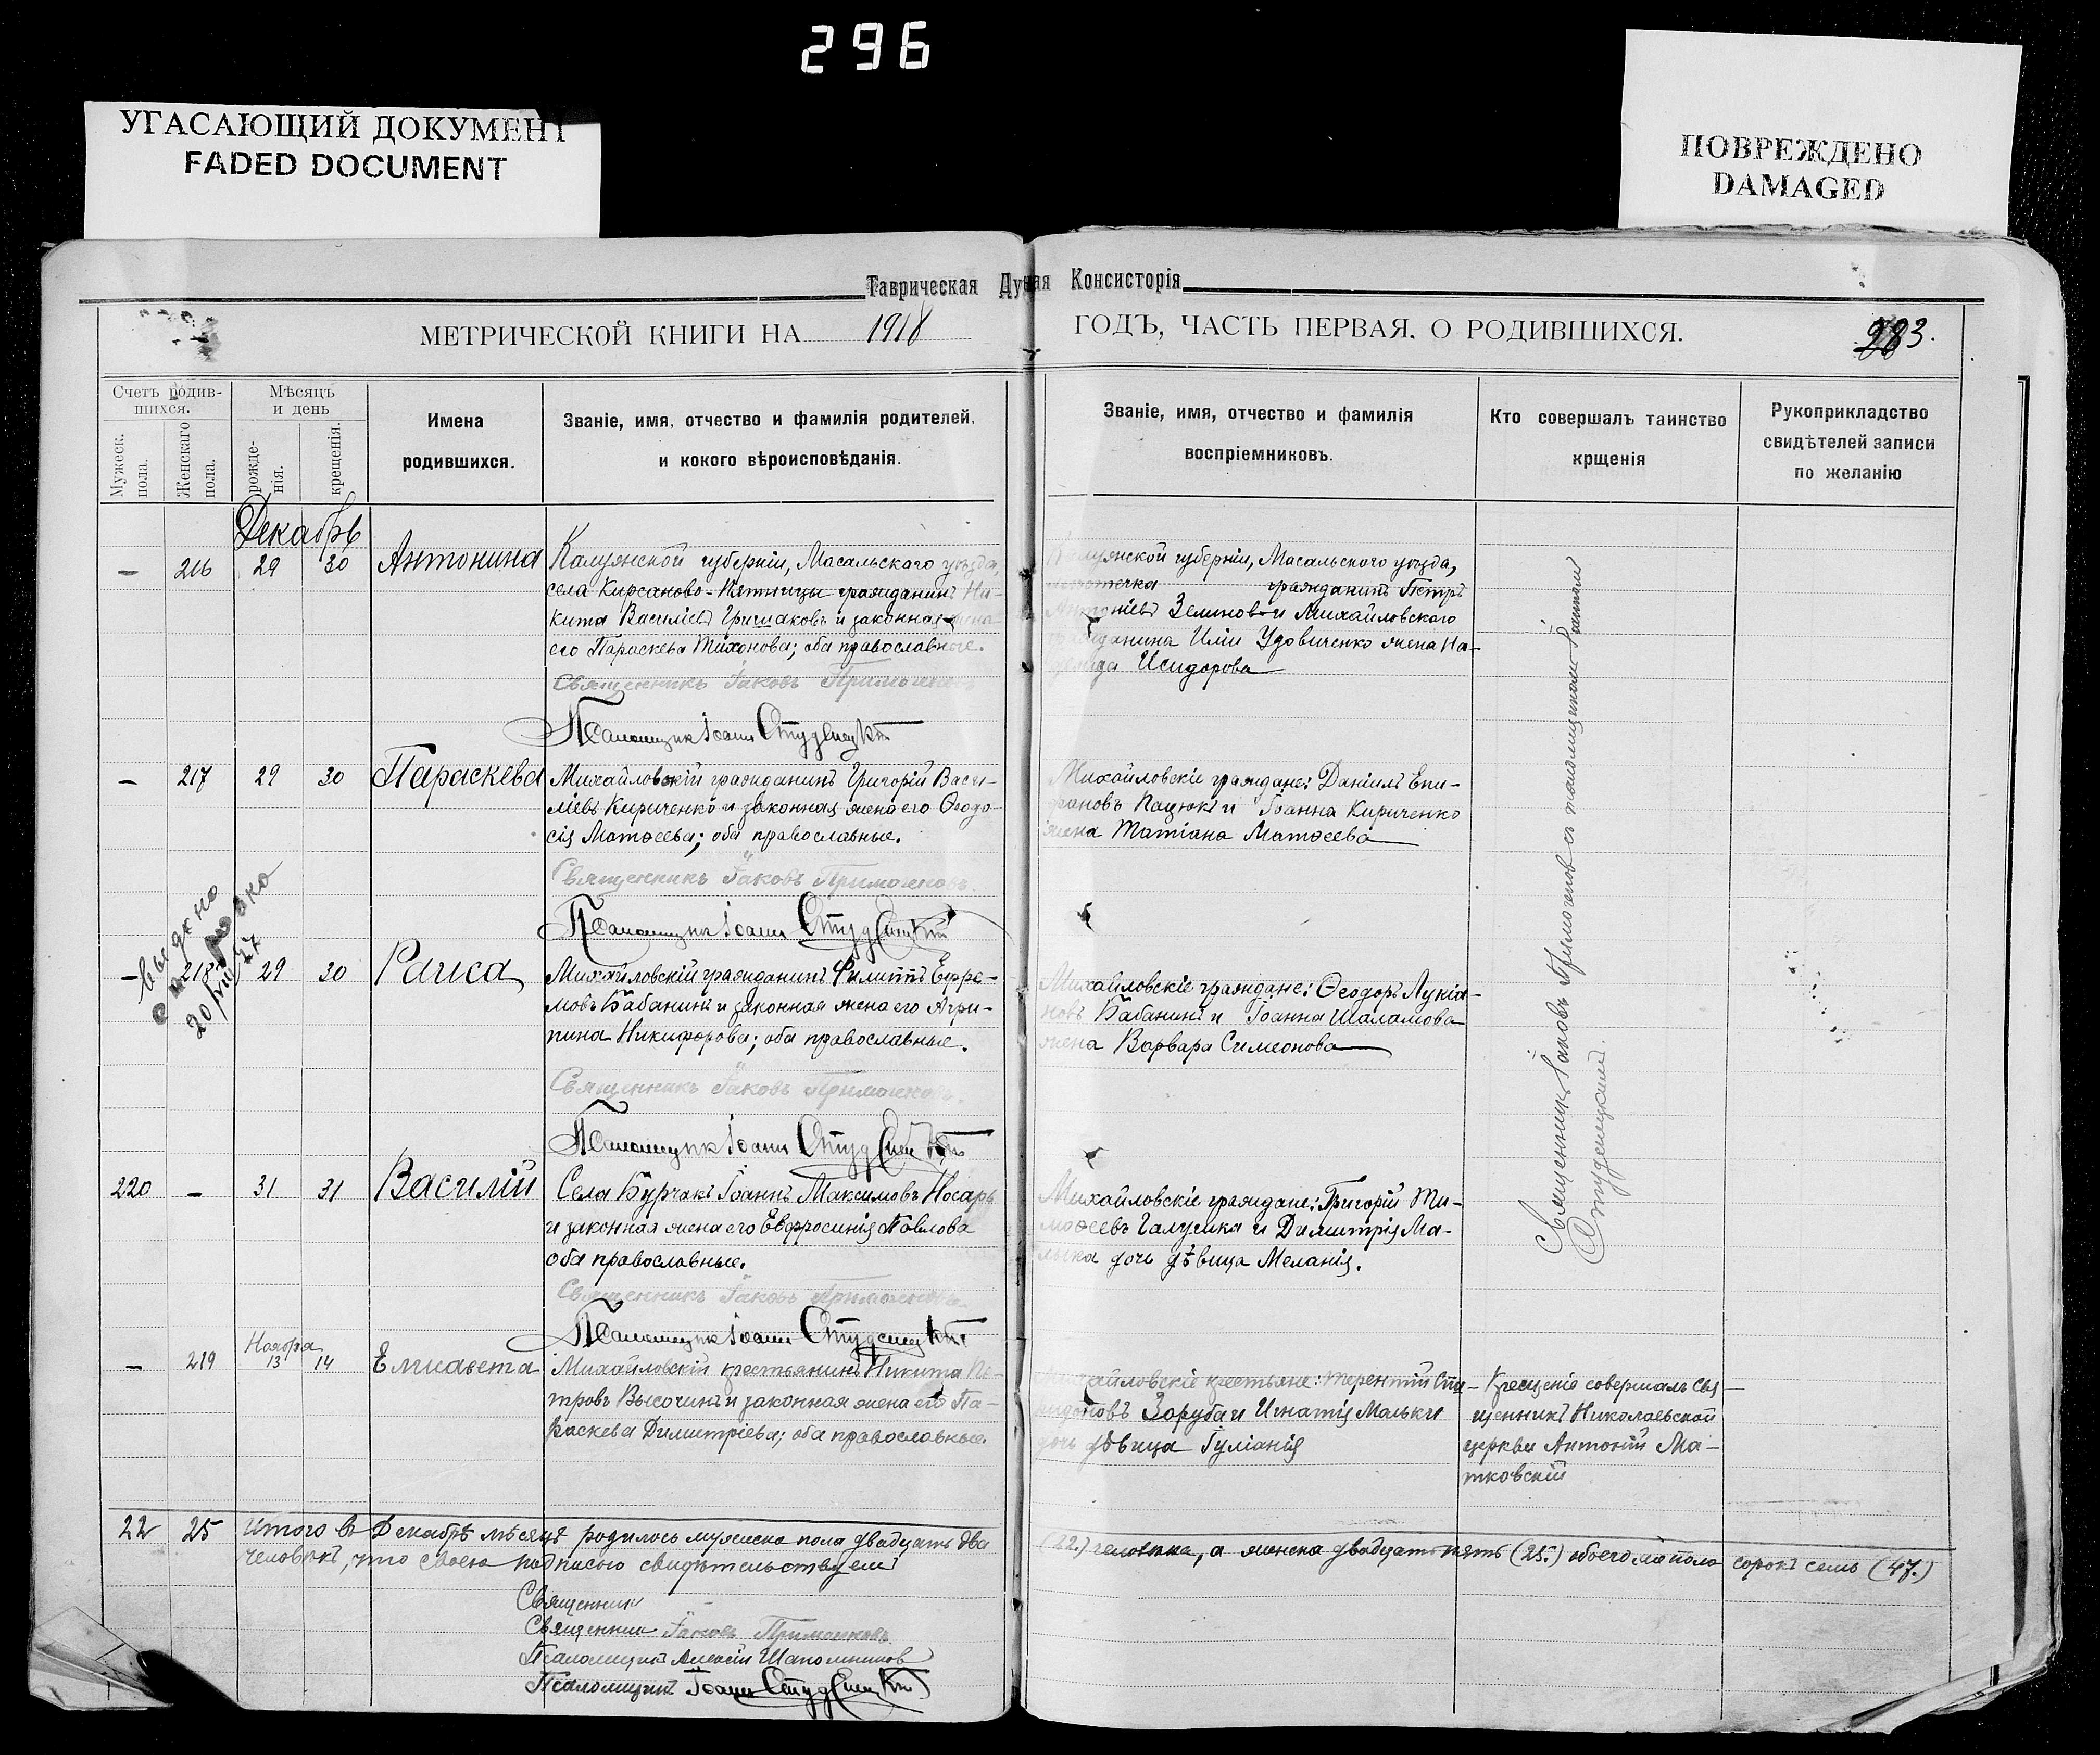 296
УГАСАЮЩИЙ ДОКУМЕНТ
FADED DOCUMENT
ПОВРЕЖДЕНО
DAMAGED
Таврическая Дуная Консисторія
МЕТРИЧЕСКОЙ КНИГИ НА 1918 ГОДЪ, ЧАСТЬ ПЕРВАЯ, О РОДИВШИХСЯ.
283.
Счетъ родив-
шихся.
Мужеск.
пола.
Женскаго
пола.
Мѣсяцъ
и день
рожде-
нія.
крещенія.
Имена
родившихся.
Званіе, имя, отчество и фамилія родителей,
и кокого вѣроисповѣданія.
Званіе, имя, отчество и фамилія
воспріемниковъ.
Кто совершалъ таинство
крщенія
Рукоприкладство
свидѣтелей записи
по желанію
Декабрь
— 216 29 30 Антонина
Калужской губерніи, Масальскаго уѣзда,
села Кирсаново-Пятницы гражданинъ Ни-
кита Василіевъ и законная жена
его Параскева Тихонова; оба православные.
Священникъ Іаковъ Примоченковъ
Псаломщикъ Іоаннъ Студеницкій
Калужской губерніи, Масальского уѣзда,
гражданинъ Петръ
Антоніевъ Земновъ и Михайловского
гражданина Иліи Удовиченко жена На-
дежда Исидорова
— 217 29 30 Параскева
Михайловскій гражданинъ Григорій Васи-
ліевъ Кириченко и законная жена его Ѳеодо-
сія Матѳеева; оба православные.
Священникъ Іаковъ Примоченковъ.
Псаломщикъ Іоаннъ Студеницкій
Михайловскіе граждане: Даніилъ Епи-
фановъ Пацюкъ и Іоанна Кириченко
жена Татіана Матѳеева
— 218 29 30 Раиса
20/VIII 47
Михайловскій гражданинъ Филиппъ Ефре-
мовъ Бабанинъ и законная жена его Агри-
пина Никифорова; оба православные.
Священникъ Іаковъ Примоченковъ.
Псаломщикъ Іоаннъ Студеницкій
Михайловскіе граждане: Ѳеодоръ Лукіа-
новъ Бабанинъ и Іоанна Шаламова
жена Варвара Симеонова
220 — 31 31 Василій
Села Бурчакъ Іоаннъ Максимовъ Носаръ
и законная жена его Евфросинія Павлова
оба православные.
Священникъ Іаковъ Примоченковъ.
Псаломщикъ Іоаннъ Студеницкій
Михайловскіе граждане: Григорій Ти-
моѳеевъ Галушка и Димитрія Ма-
лыка дочь дѣвица Меланія.
Священникъ Іаковъ Примоченковъ съ псаломщикомъ Іоанномъ
Студеницкимъ.
Ноября
— 219 13 14 Елисавета
Михайловскій крестьянинъ Никита Пе-
тровъ Высочинъ и законная жена его Па-
раскева Димитріева; оба православные.
Михайловскіе крестьяне: Терентій Спи-
ридоновъ Заруба и Игнатія Малыки
дочь дѣвица Іуліанія
Крещеніе совершалъ свя-
щенникъ Николаевской
церкви Антоній Ма-
тковскій
22 25 Итого въ Декабрѣ мѣсяцѣ родилось мужеска пола двадцать два (22.) человѣка, а женска двадцать пять (25.) обоего же пола сорокъ семь (47.)
человѣкъ, что своею подписью свидѣтельствуемъ
Священникъ
Священникъ Іаковъ Примоченковъ
Псаломщикъ Алексій Шапошниковъ
Псаломщикъ Іоаннъ Студеницкій